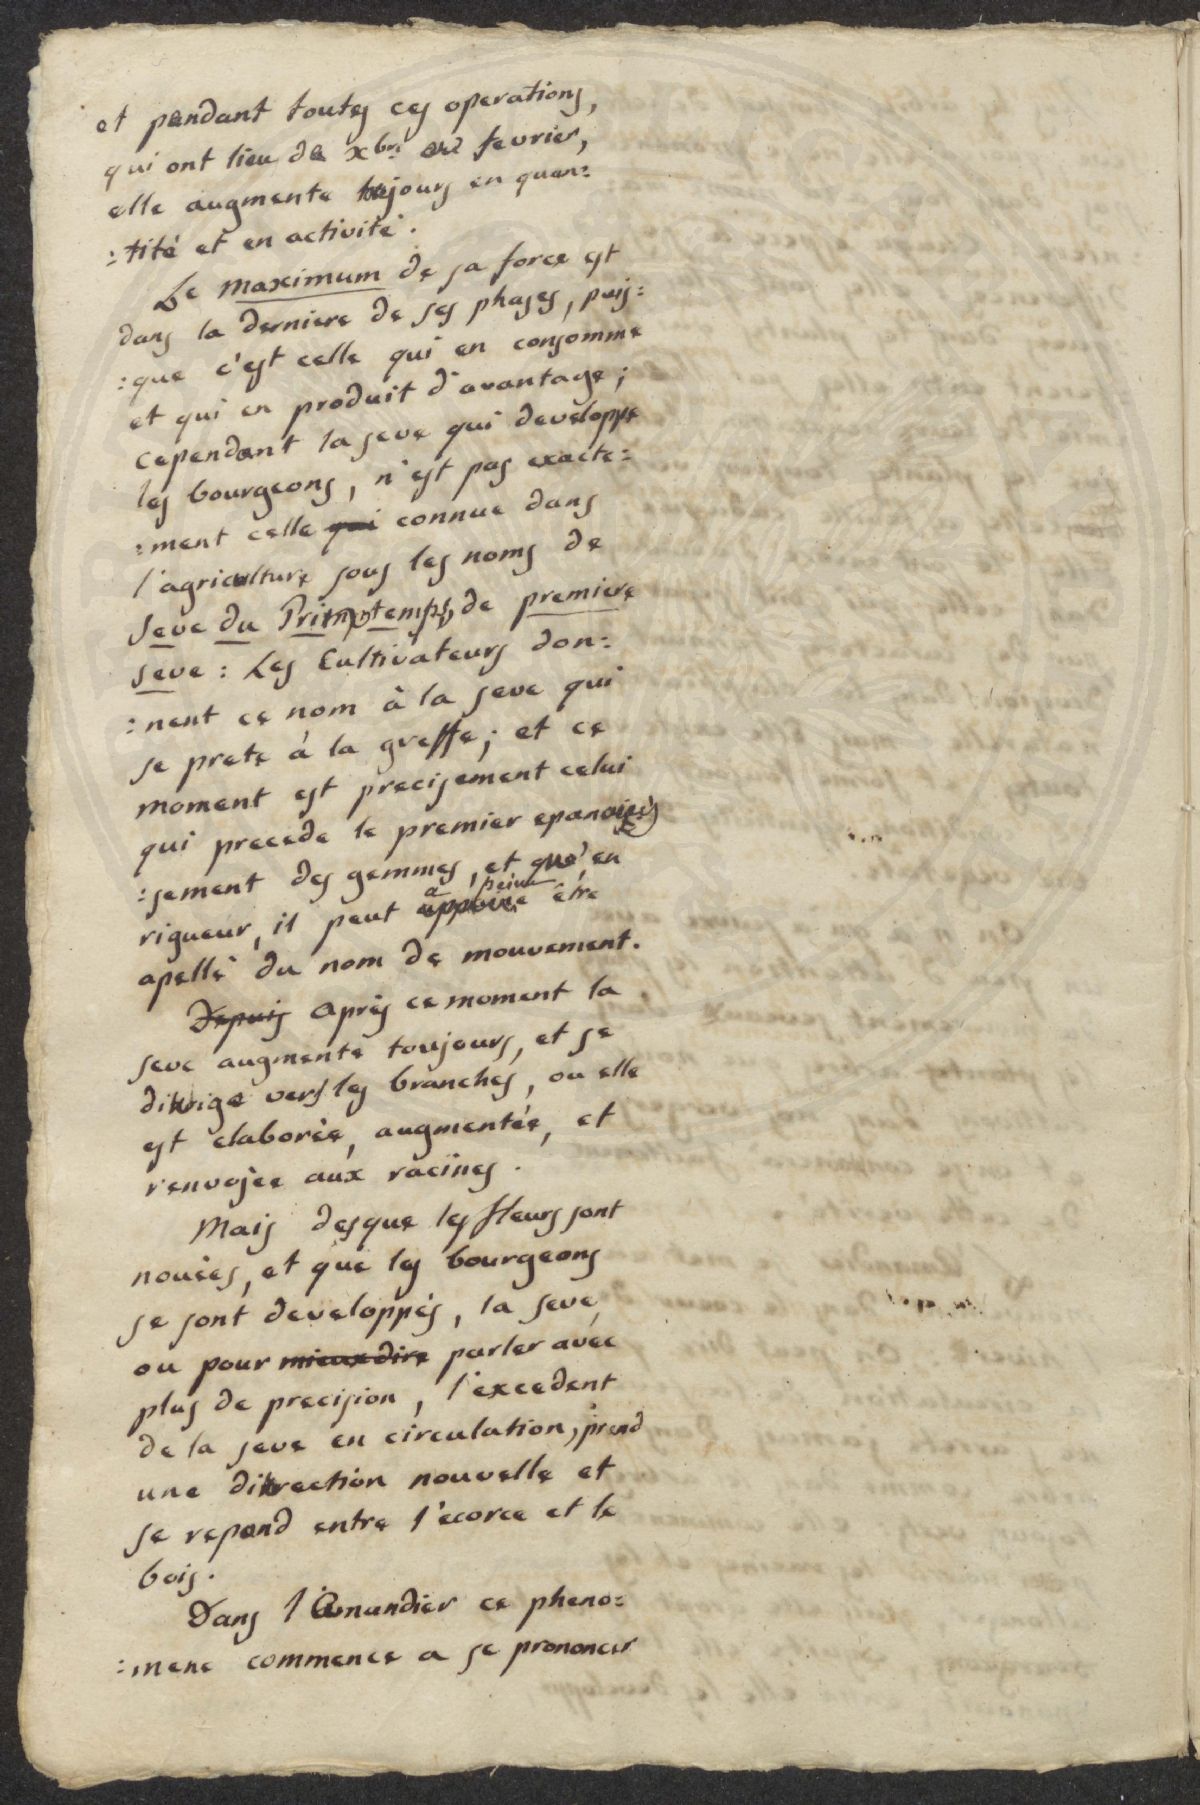 et pendant toutes ces operations,
qui ont lieu de xbre en fevrier,
elle augmente toujours en quan:
:tité et en activité.
Le maximum de sa force est
dans la derniere de ses phases, puis:
:que c'est celle qui en consomme
et qui en produit d'avantage;
cependant la seve qui developpe
les bourgeons, n'est pas exacte:
:ment celle qui connue dans
l'agriculture sous les noms de
Seve du Printemps, de premiere
seve: Les Cultivateurs don:
:nent ce nom à la seve qui
se prete à la greffe; et ce
moment est precisement celui
qui precede le premier epanouis
:sement des gemmes, et qu'en
rigueur, il peut a peine être
apellé du nom de mouvement.
Depuis après ce moment la
seve augmente toujours, et se
dirige vers les branches, ou elle
est elaborée, augmentée, et
renvojée aux racines.
Mais desque les fleurs sont
nouées, et que les bourgeons
se sont developpés, la seve,
ou pour mieux dire parler avec
plus de precision, l'excedent
de la seve en circulation, prend
une direction nouvelle et
se repand entre l'écorce et le
bois.
Dans l'Amandier ce pheno:
:mene commence a se prononcer